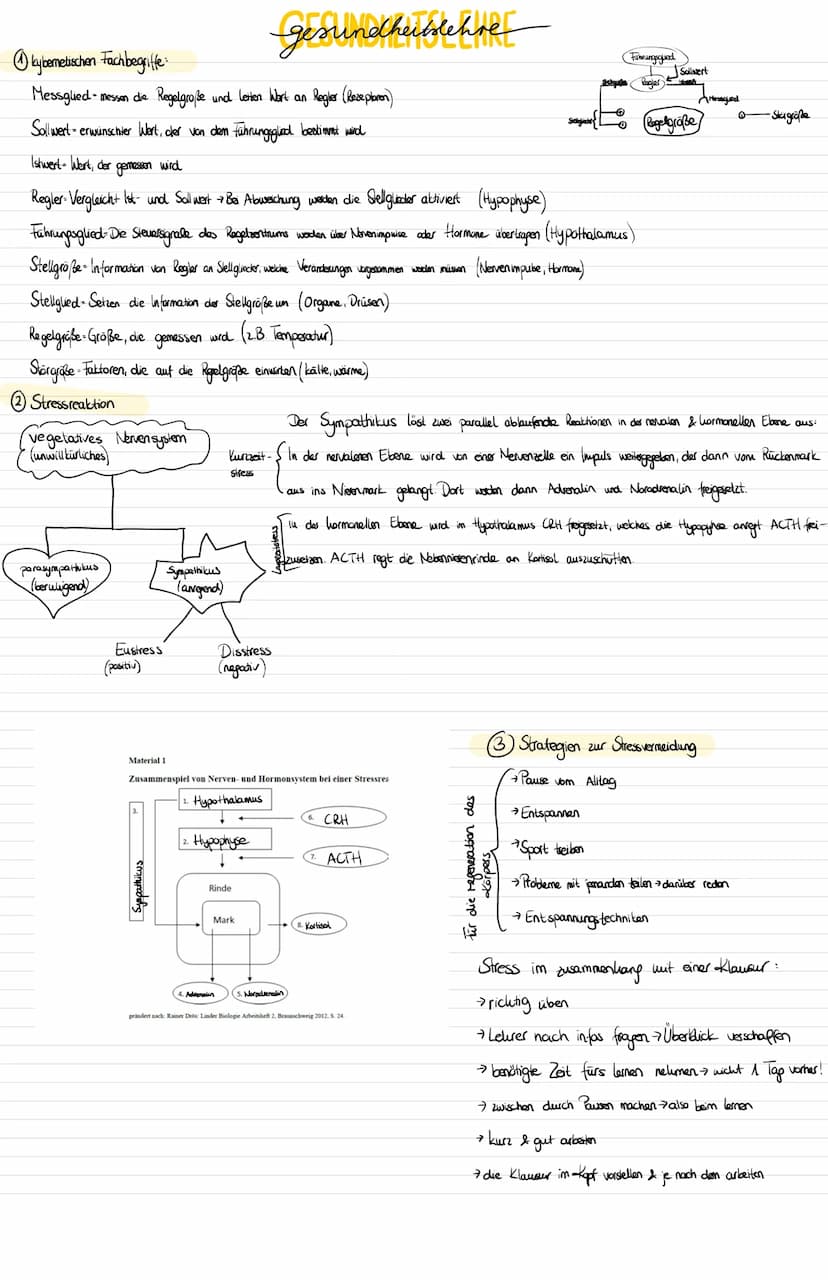 GESUNDHEITSLEHRE
gesundheitslehre
① kybernetischen Fachbegriffe:
Führungsglied
Regler
Sollwert
Messglied
Regelgröße
Störgröße
Messglied - messen die Regelgröße und leiten Wert an Regler (Rezeptoren)
Sollwert - erwünschter Wert, der von dem Führungsglied bestimmt wird
Istwert - Wert, der gemessen wird
Regler - Vergleicht Ist- und Sollwert → Bei Abweichung werden die Stellglieder aktiviert (Hypophyse)
Führungsglied - Die Steuersignale des Regelzentrums werden über Nervenimpulse oder Hormone übertragen (Hypothalamus)
Stellgröße - Information von Regler an Stellglieder, welche Veränderungen vorgenommen werden müssen (Nervenimpulse, Hormone)
Stellglied - Setzen die Information der Stellgröße um (Organe, Drüsen)
Regelgröße - Größe, die gemessen wird (z.B Temperatur)
Störgröße - Faktoren, die auf die Regelgröße einwirken (kälte, wärme)
② Stressreaktion
vegetatives Nervensystem
(unwillkürliches)
parasympathikus
(beruhigend)
Sympathikus
(anregend)
Eustress
(positiv)
Disstress
(negativ)
Der Sympathikus löst zwei parallel ablaufende Reaktionen in der nervalen & hormonellen Ebene aus:
Kurzzeit-
stress
In der nervaleren Ebene wird von einer Nervenzelle ein Impuls weitergegeben, der dann vom Rückenmark
aus ins Nierenmark gelangt. Dort werden dann Adrenalin und Noradrenalin freigesetzt.
Langzeitstress
In der hormonellen Ebene wird im Hypothalamus CRH freigesetzt, welches die Hypophyse anregt ACTH frei-
zusetzen. ACTH regt die Nebennierenrinde an Kortisol auszuschütten.
Material 1
Zusammenspiel von Nerven- und Hormonsystem bei einer Stressrea
1. Hypothalamus
3.
Sympathikus
6. CRH
2. Hypophyse
7. ACTH
Rinde
Mark
8. Kortisol
4. Adrenalin
5. Noradrenalin
geändert nach: Rainer Drös: Linder Biologie Arbeitsheft 2, Braunschweig 2012, S. 24
③ Strategien zur Stressvermeidung
für die regeneration des
Körpers
→ Pause vom Alltag
→ Entspannen
→ Sport treiben
→ Probleme mit jemanden teilen → darüber reden
→ Entspannungstechniken
Stress im zusammenhang mit einer Klausur:
→ richtig üben
→ Lehrer nach infos fragen → Überblick verschaffen
→ benötigte Zeit fürs lernen nehmen → nicht 1 Tag vorher!
→ zwischen durch Pausen machen → also beim lernen
→ kurz & gut arbeiten
→ die Klausur im Kopf vorstellen & je nach dem arbeiten